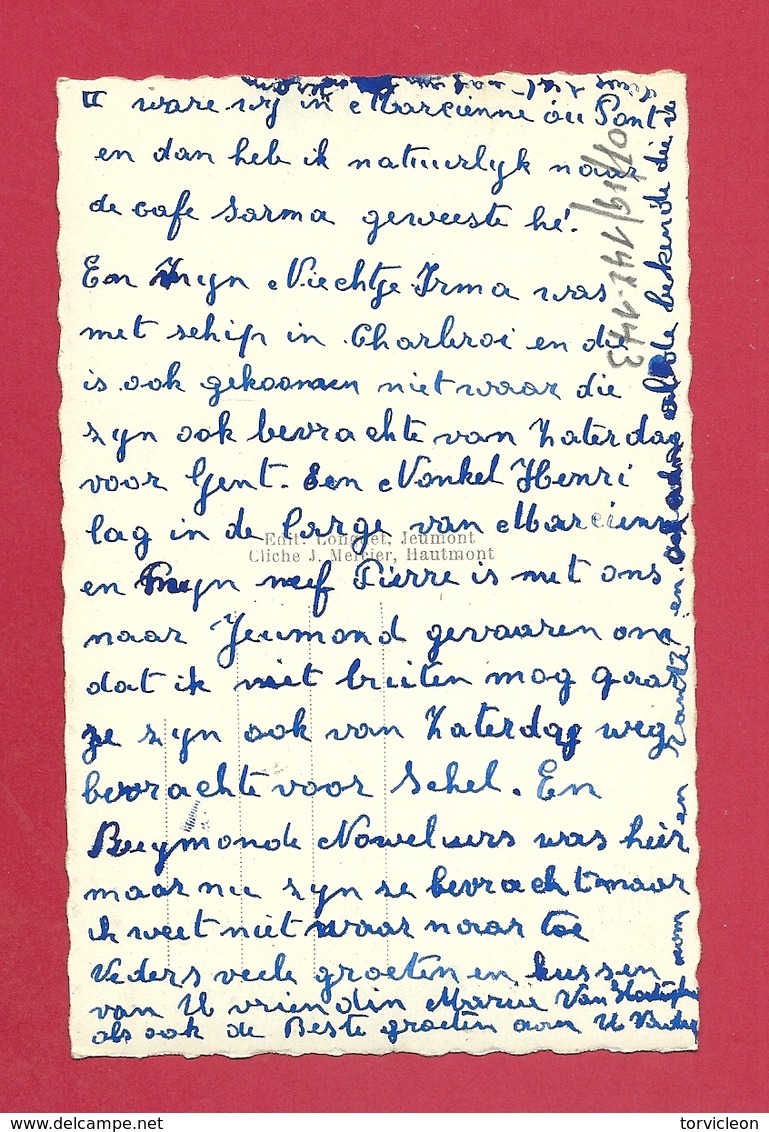 II ware wy in Marcienne au Pont
en dan heb ik natuurlyk naar
de cafe Sarma geweeste hé!
En Myn Niechtje Irma was
met schip in Charleroi en die
is ook gekoomen niet waar die
zyn ook bevrachte van Zaterdag
voor Gent. Een Nonkel Henri
lag in de large van Marcienne
Edit. Longuet, Jeumont
Cliche J. Mercier, Hautmont
en Myn neef Pierre is met ons
naar Jeumond gevaaren om
dat ik niet buiten mog gaan
ze zyn ook van Zaterdag weg
bevrachte voor Schel. En
Reymonde Nowelaers was hier
maar nu zyn ze bevracht maar
ik weet niet waar naar toe
Veders veele groeten en kussen
van U vriendin Maria Van
als ook de Beste groeten aan U
bekende die
en
07/119/142.143
torvicleon